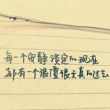 每一个安静淡定的现在
都有一个浪漫很天真的过去